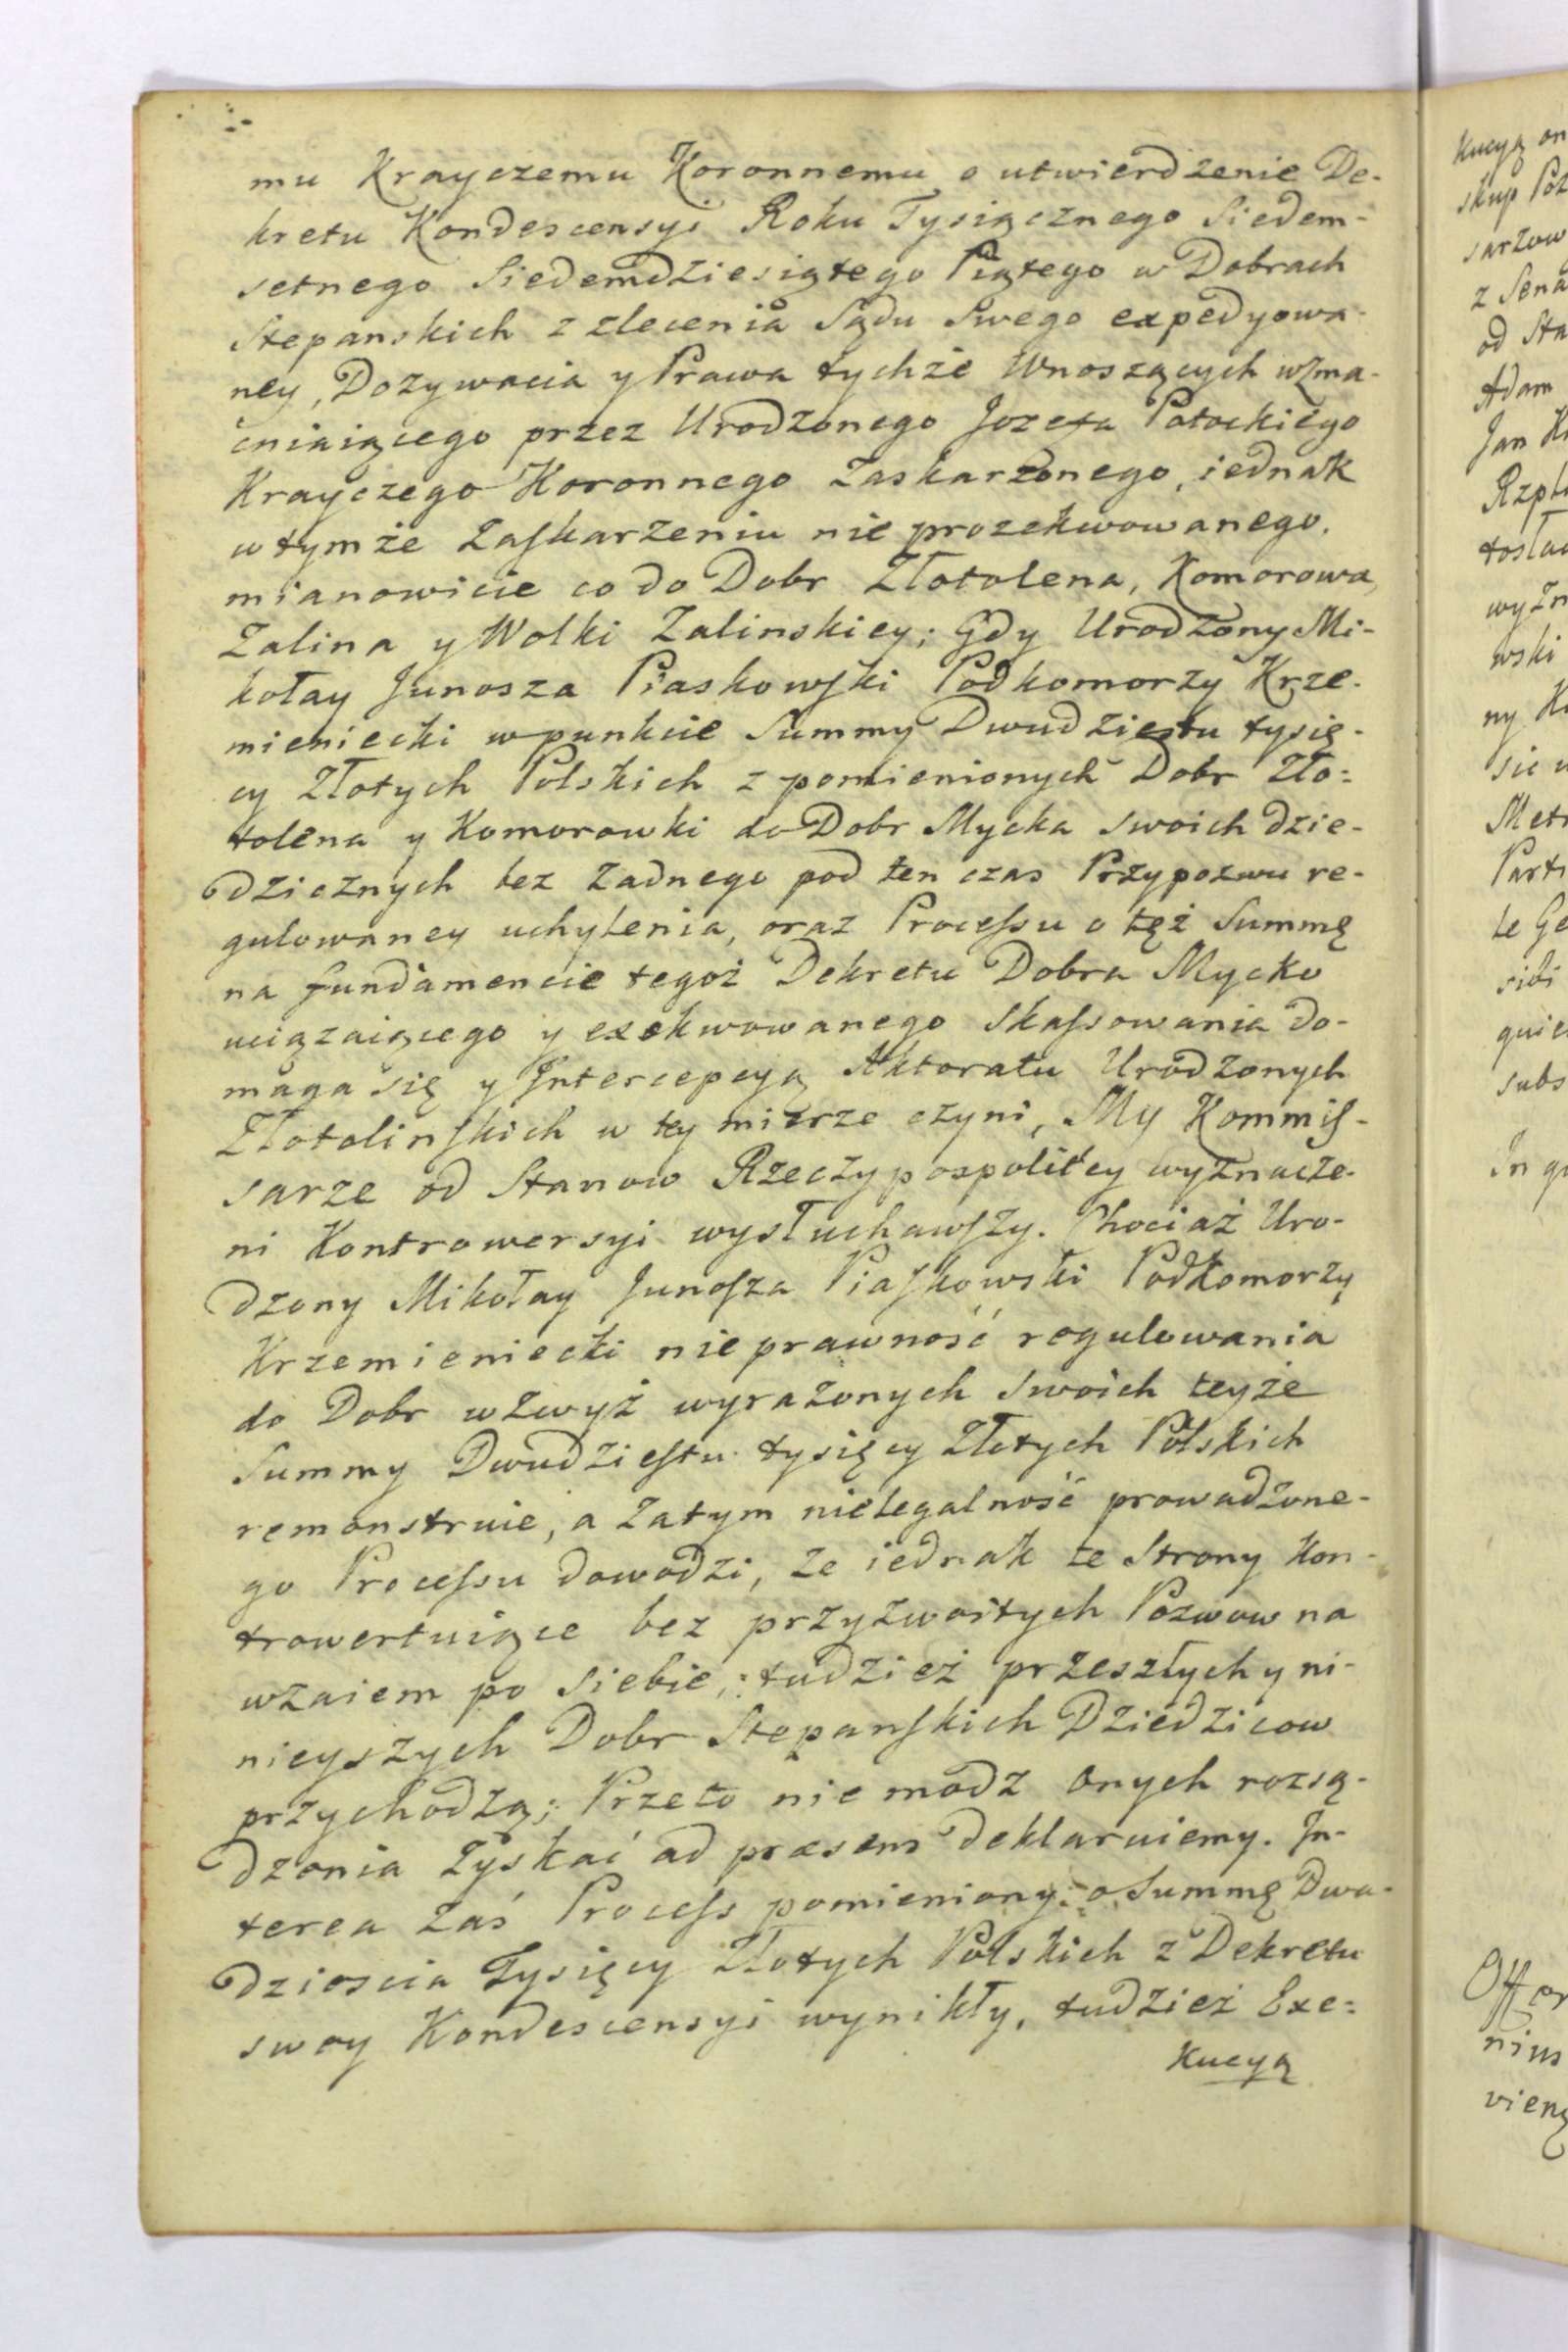 mu Krayczemu Koronnemu o utwierdzenie De-
kretu Kondescensyi Roku Tysiącznego Siedem-
setnego Siedemdziesiątego Piątego w Dobrach
Stepanskich z zlecenia Sądu Swego expedyowa-
ney, Dozywocia y Prawa tychże Wnoszących wzma-
cniaiącego przez Urodzonego Jozefa Potockiego
Krayczego Koronnego Zaskarżonego, iednak
w tymże Zaskarżeniu nie prozekwowanego.
mianowicie co do Dobr Złotolena, Komorowa,
Zalina y Wolki Zalinskiey; Gdy Urodzony Mi-
kołay Junosza Piaskowski Podkomorzy Krze-
mieniecki w punkcie Summy Dwudziestu tysię-
cy Złotych Polskich z pomienionych Dobr Zło=
tolena y Komorowki do Dobr Mycka swoich dzie-
dzicznych bez Zadnego pod ten czas Przypozwu re-
gulowaney uchylenia, oraz Processu o tęż Summę
na fundamencie tegoż Dekretu Dobra Mycko
uciązaiącego y exekwowanego Skassowania do-
maga się y Intercepcyą Aktoratu Urodzonych
Złotolinskich w tey mierze czyni, My Kommis-
sarze od Stanow Rzeczypospolitey wyznacze-
ni Kontrowersyi wysłuchawszy. Chociaż Uro-
dzony Mikołay Junosza Piaskowski Podkomorzy
Krzemieniecki nieprawność regulowania
do Dobr wzwyż wyrażonych swoich teyże
Summy Dwudziestu tysięcy Złotych Polskich
remonstruie, a Zatym nielegalność prowadzone-
go Processu dowodzi, że iednak te Strony Kon-
trowertuiące bez przyzwoitych Pozwow na
wzaiem po siebie, tudzież przeszłych y ni-
nieyszych Dobr Stepanskich Dziedzicow
przychodzą; Przeto nie modz onych rozsą-
dzenia Zyskać ad præsens deklaruiemy. In-
terea Zaś Process pomieniony o Summę Dwa-
dziescia Tysięcy Złotych Polskich z Dekretu
swoy Kondescensyi wynikły, tudzież Exe=
kucyą
kucyą
z Sena
Adam